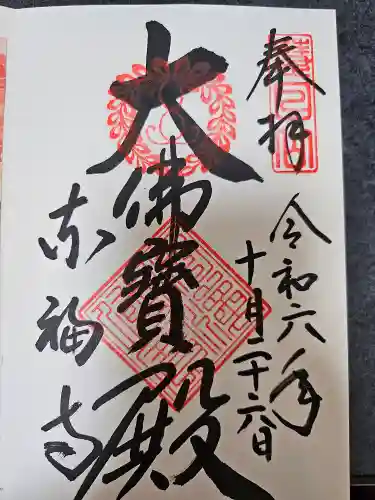 奉拝
令和六年
十月二十六日
大佛寶殿
东福寺